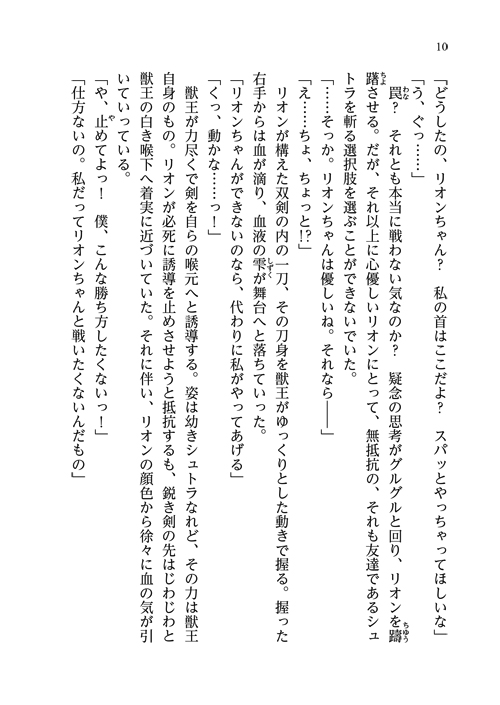 10
「どうしたの、リオンちゃん? 私の首はここだよ? スパッとやっちゃってほしいな」
「う、ぐっ……」
罠? それとも本当に戦わない気なのか? 疑念の思考がグルグルと回り、リオンを躊
躇させる。だが、それ以上に心優しいリオンにとって、無抵抗の、それも友達であるシュ
トラを斬る選択肢を選ぶことができないでいた。
「……そっか。リオンちゃんは優しいね。それなら――」
「え……ちょ、ちょっと!?」
リオンが構えた双剣の内の一刀、その刀身を獣王がゆっくりとした動きで握る。握った
右手からは血が滴り、血液の雫が舞台へと落ちていった。
「リオンちゃんができないのなら、代わりに私がやってあげる」
「くっ、動かな……っ!」
獣王が力尽くで剣を自らの喉元へと誘導する。姿は幼きシュトラなれど、その力は獣王
自身のもの。リオンが必死に誘導を止めさせようと抵抗するも、鋭き剣の先はじわじわと
獣王の白き喉下へ着実に近づいていた。それに伴い、リオンの顔色から徐々に血の気が引
いていっている。
「や、止めてよっ! 僕、こんな勝ち方したくないっ!」
「仕方ないの。私だってリオンちゃんと戦いたくないんだもの」